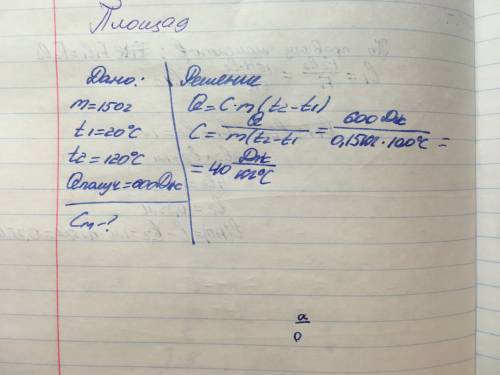 Площад
Дано:
m=150г
t1=20°C
t2=120°C
Qполуч=600Дж
Cm-?
Решение
Q=C·m(t2-t1)
C= Q/m(t2-t1 = 600Дж/0,15кг·100°C =
=40 Дж/кг°C
a